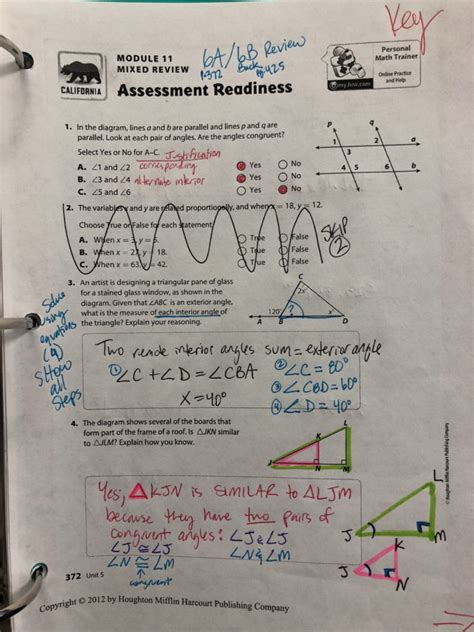 Key
MODULE 11
MIXED REVIEW
6A/6B Review
p372 Back pg 425
Personal
Math Trainer
Online Practice
and Help
my.hrw.com
CALIFORNIA
Assessment Readiness
1. In the diagram, lines a and b are parallel and lines p and q are
parallel. Look at each pair of angles. Are the angles congruent?
Select Yes or No for A–C. Justification
A. ∠1 and ∠2 corresponding Yes No
B. ∠3 and ∠4 alternate interior Yes No
C. ∠5 and ∠6 Yes No
p q
1 2 a
3
4 5 6 b
2. The variables x and y are related proportionally, and when x = 18, y = 12.
Choose True or False for each statement.
A. When x = 3, y = True False
B. When x = 27, y = 18. True False
C. When x = 63, y = 42. True False
SKIP
2
3. An artist is designing a triangular pane of glass
for a stained glass window, as shown in the
diagram. Given that ∠ABC is an exterior angle,
what is the measure of each interior angle of
the triangle? Explain your reasoning.
C
2x
120° ? x°
A B D
Solve
using
equations
(4)
Show
all
steps
Two remote interior angles sum = exterior angle
① ∠C + ∠D = ∠CBA
X = 40°
② ∠C = 80°
③ ∠CBD = 60°
④ ∠D = 40°
4. The diagram shows several of the boards that
form part of the frame of a roof. Is △JKN similar
to △JLM? Explain how you know.
L
K
J N M
Yes, △KJN is SIMILAR to △LJM
because they have two pairs of
congruent angles: ∠J & ∠J
∠J ≅ ∠J ∠N & ∠M
∠N ≅ ∠M
congruent
L
J M
K
J N
372 Unit 5
© Houghton Mifflin Harcourt Publishing Company
Copyright © 2012 by Houghton Mifflin Harcourt Publishing Company